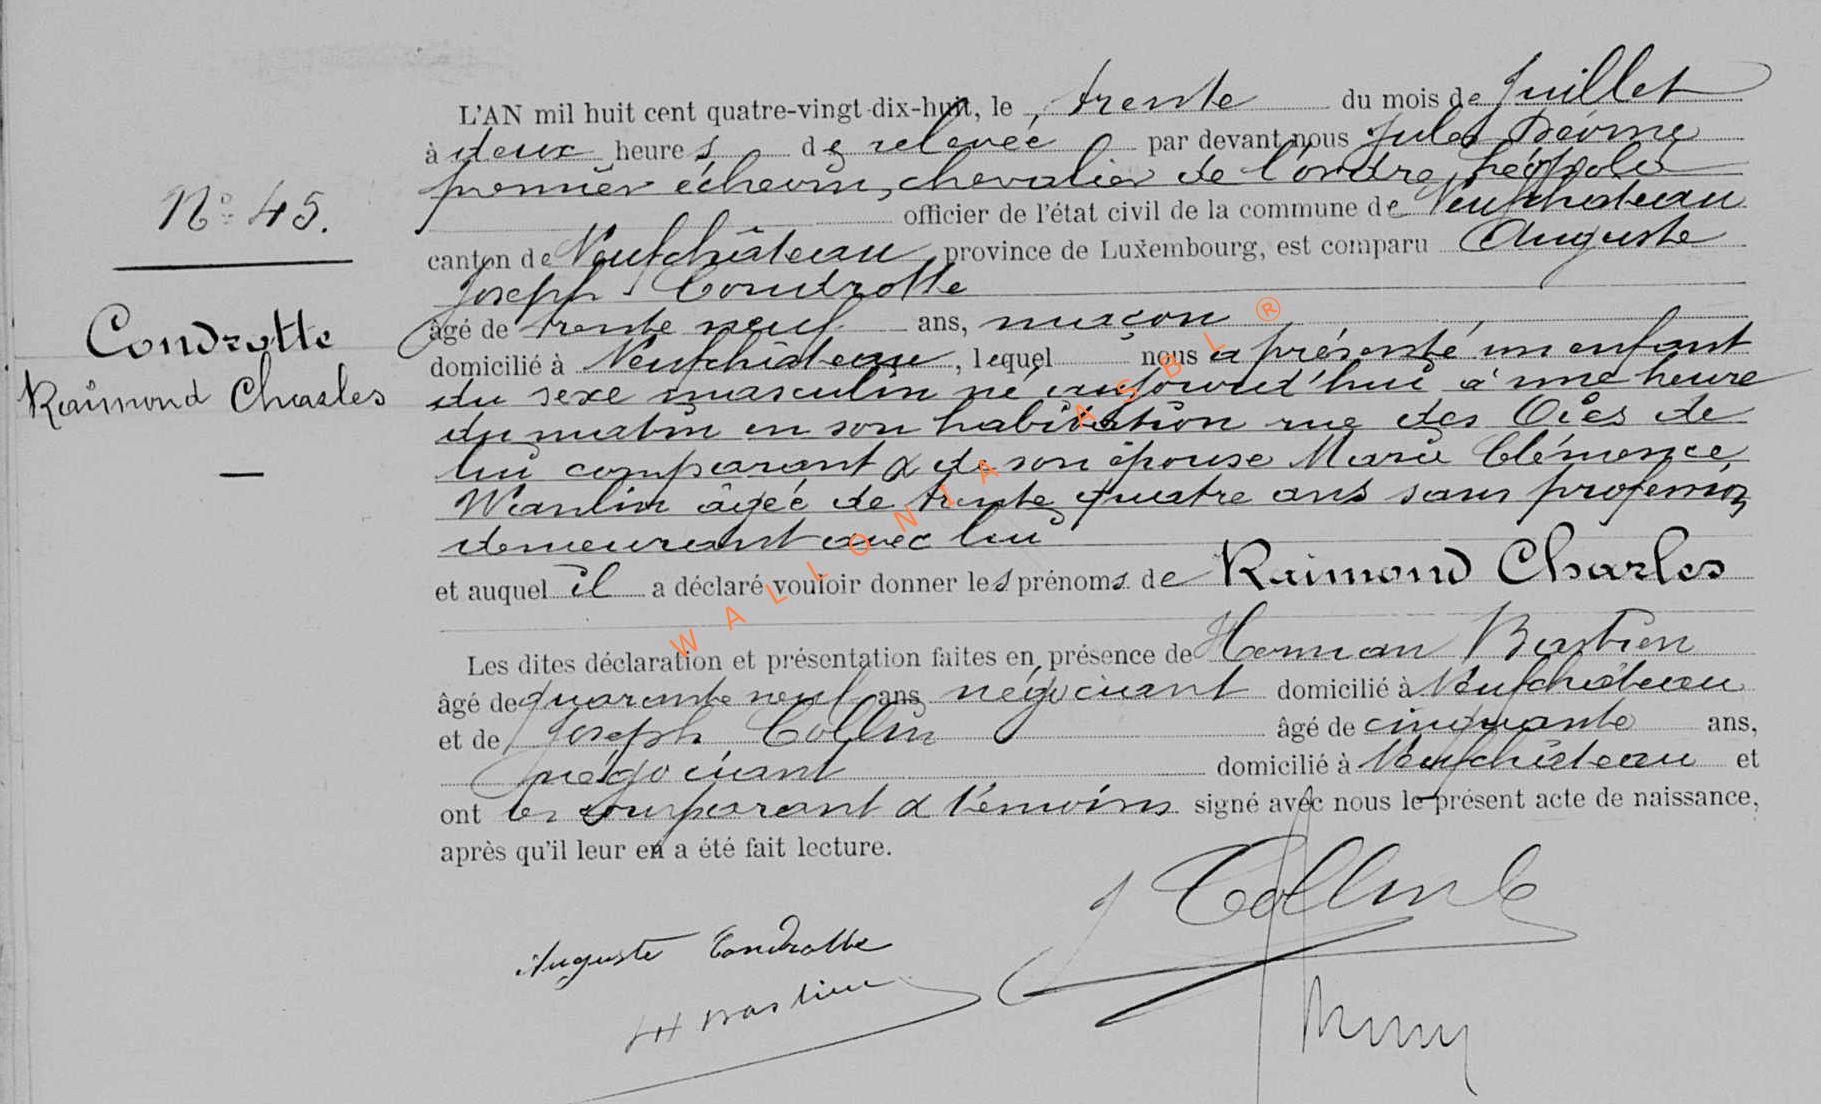 L'AN mil huit cent quatre-vingt-dix-huit, le trente du mois de Juillet
à deux heures de relevée par devant nous Jules
premier échevin, chevalier de l'ordre Léopold
officier de l'état civil de la commune de Neufchateau
canton de Neufchâteau province de Luxembourg, est comparu Auguste
Joseph Condrotte
âgé de trente neuf ans, maçon
domicilié à Neufchâteau, lequel nous a présenté un enfant
du sexe masculin né aujourd'hui à une heure
du matin en son habitation rue des Oies de
lui comparant & de son épouse Marie Clémence
Wanlin âgée de trente quatre ans sans profession
demeurant avec lui
et auquel il a déclaré vouloir donner les prénoms de Raimond Charles
Les dites déclaration et présentation faites en présence de Herman Bastien
âgé de quarante neuf ans négociant domicilié à Neufchâteau
et de Joseph Collin âgé de cinquante ans,
négociant domicilié à Neufchâteau et
ont les comparant & témoins signé avec nous le présent acte de naissance,
après qu'il leur en a été fait lecture.
N° 45.
Condrotte
Raimond Charles
J Collin
Auguste Condrotte
H Bastien
WALLONIA ASBL ®